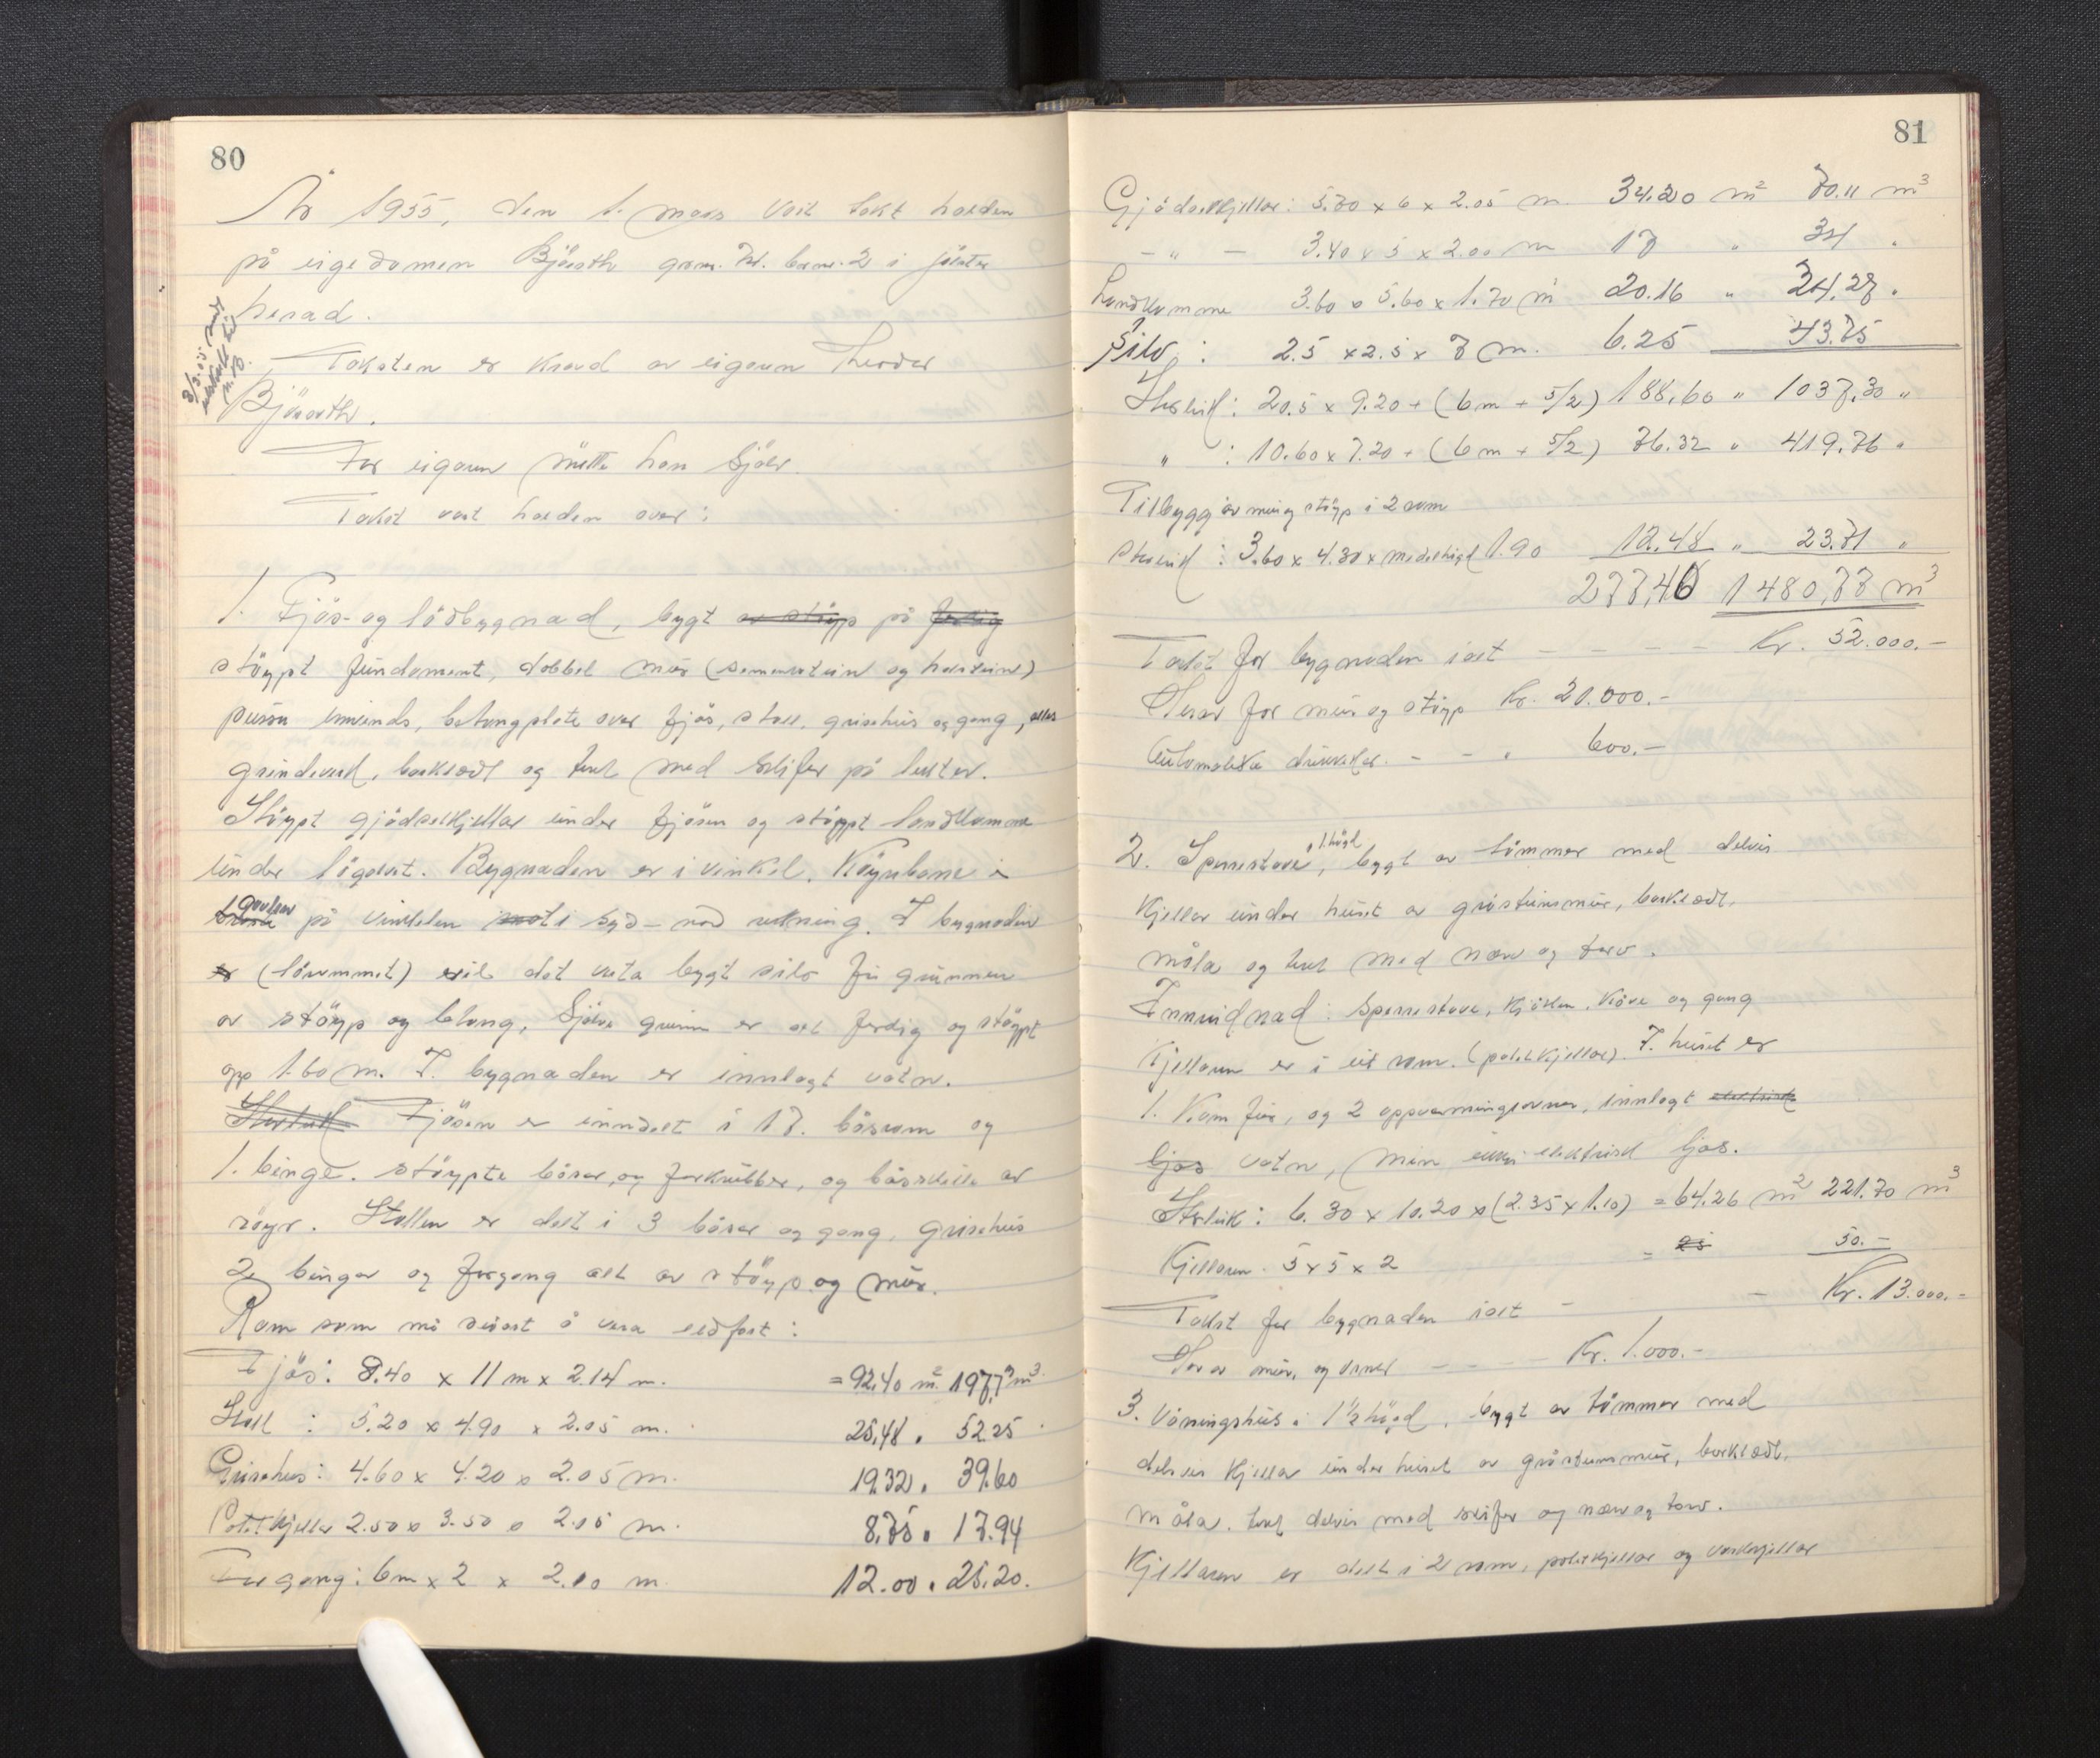 80
År 1955, den 1. mars vart takt halden
på eigedomen Bjåstth gnr. bnr. 2 i Jölster
herad.
Taksten er kravd av eigaren
For eigaren møtte han sjölv.
Takst vart halden over:
1. Fjös- og lödbygnad, bygt av støyp på ferdig
støypt fundament, dobbel mur (sementstein og holstein)
pussa innvends, betongplate over fjös, stall, grisehus og gang, elles
grindverk, bordkledt og tekt med skifer på lekter.
Støypt gjødselkjellar under fjösen og støypt landkumme
under lågolvt. Bygnaden er i vinkel. Köyrebane i
gavlen på vinkelen mot i syd-nord retning. I bygnaden
er (lårummet) vil det verta bygt silo frå grunnen
av støyp og betong. Sjølve grunnen er alt ferdig og støypt
opp 1.60 m. I bygnaden er innlagt vatn.
Storleik Fjösen er inndelt i 17. båsrom og
1. binge. støypte båsar, og forkrubber, og båsskille av
röyr. Stallen er delt i 3 båsar og gang, grisehus
2 bingar og forgang alt av støyp og mur.
Rom som må seiast å vera eldfast:
Fjös: 8.40 x 11 m x 2.14 m. = 92.40 m². 197,7 m³
Stall : 5.20 x 4.90 x 2.05 m. 25,48 . 52.25
Grisehus: 4.60 x 4.20 x 2.05 m. 19.32 . 39.60
Potetkjellar 2.50 x 3.50 x 2.05 m. 8.75 . 17.94
Forgang: 6m x 2 x 2.10 m 12.00 . 25.20.
81
Gjödselkjellar: 5.70 x 6 x 2.05 m. 34.20 m² 70.11 m³
- " - 3.40 x 5 x 2.00 m 17 " 34 "
Landkumme 3.60 x 5.60 x 1.70 m 20.16 " 34.27 "
Silo: 2.5 x 2.5 x 7 m. 6.25 43.75
Storleik: 20.5 x 9.20 + (6 m + 5/2) 188,60 " 1037,30 "
" : 10.60 x 7.20 + (6 m + 5/2) 76.32 " 419.76 "
Tilbygg av mur og støyp i 2 rom
Storleik : 3.60 x 4.30 x medelhögd 1.90 12.48 " 23.71 "
277,40 1480,77 m³
Takst for bygnaden i alt - - - - Kr. 52.000.-
Herav for mur og støyp Kr. 21.000.-
Automatiske drikkekar. - - " 600.-
2. Sperrestove, 1. högd, bygt av tömmer med delvis
Kjellar under huset av gråsteinsmur, bordkledt.
måla og tekt med næver og torv.
Innreidnad: Sperrestove, kjöken, kove og gang
Kjellaren er i eit rom. (potetkjellar). I huset er
1. Komfur, og 2 oppvarmingsovnar, innlagt elektrisk
ljos vatn, men ikkje elektrisk ljos.
Storleik: 6.30 x 10.20 x (2.35 x 1.10) = 64.26 m² 221.70 m³
Kjellaren. 5 x 5 x 2 = 25 50.-
Takst for bygnaden i alt - - Kr. 13.000.-
Herav mur, og ovner - - - - Kr. 1.000.-
3. Våningshus i 1 ½ högd, bygt av tömmer med
delvis kjellar under huset av gråsteinsmur, bordkledt,
måla. tekt delvis med skifer og næver og torv.
Kjellaren er delt i 2 rom, potetkjellar og vaskekjellar